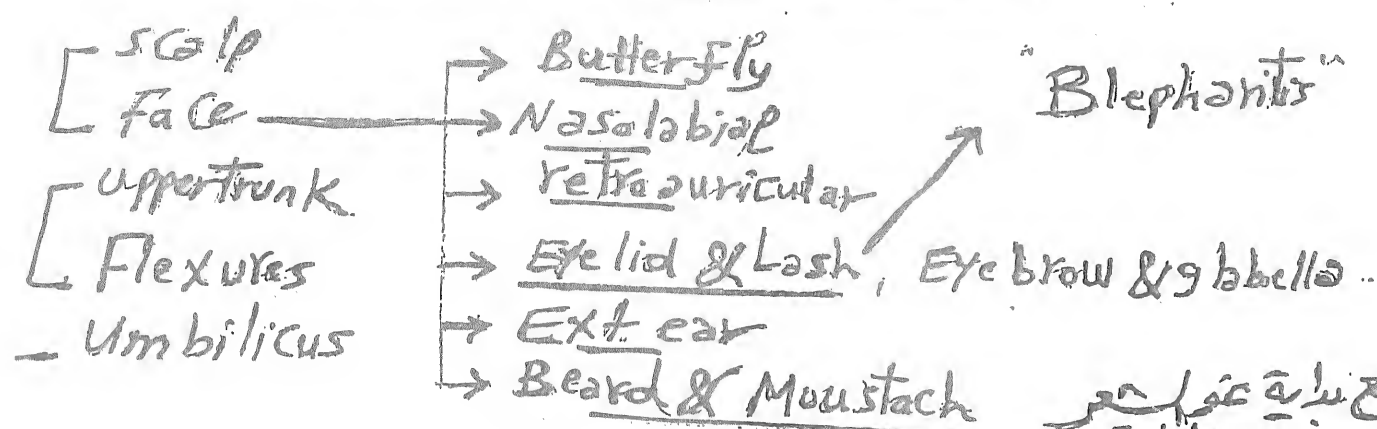 scalp
Face
uppertrunk
Flexures
Umbilicus
Butterfly
Nasolabial
retroauricular
Eyelid & Lash, Eyebrow & glabella
Ext ear
Beard & Moustach
"Blepharitis"